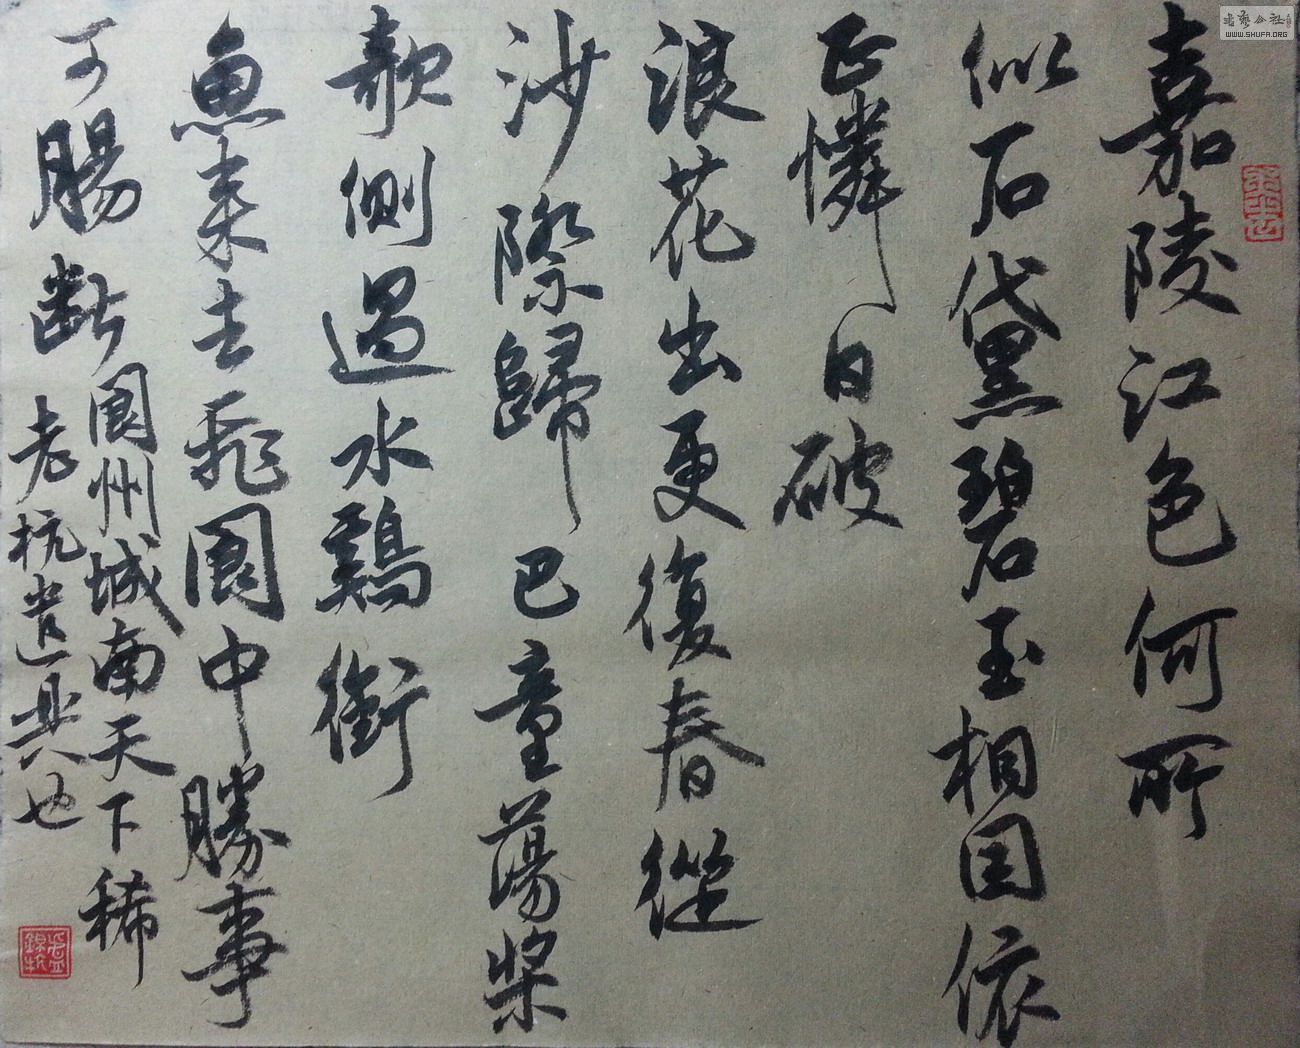 嘉陵江色何所
似石黛碧玉相因依
正憐日破
浪花出更復春從
沙際歸巴童蕩槳
欹側過水鷄銜
魚來去飛閬中勝事
可腸斷閬州城南天下稀
老杭遣興也
WWW.SHUFA.ORG